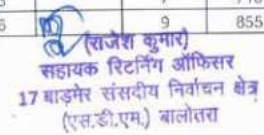 6 9 855
(राजेश कुमार)
सहायक रिटर्निंग ऑफिसर
17 बाड़मेर संसदीय निर्वाचन क्षेत्र
(एस.डी.एम.) बालोतरा